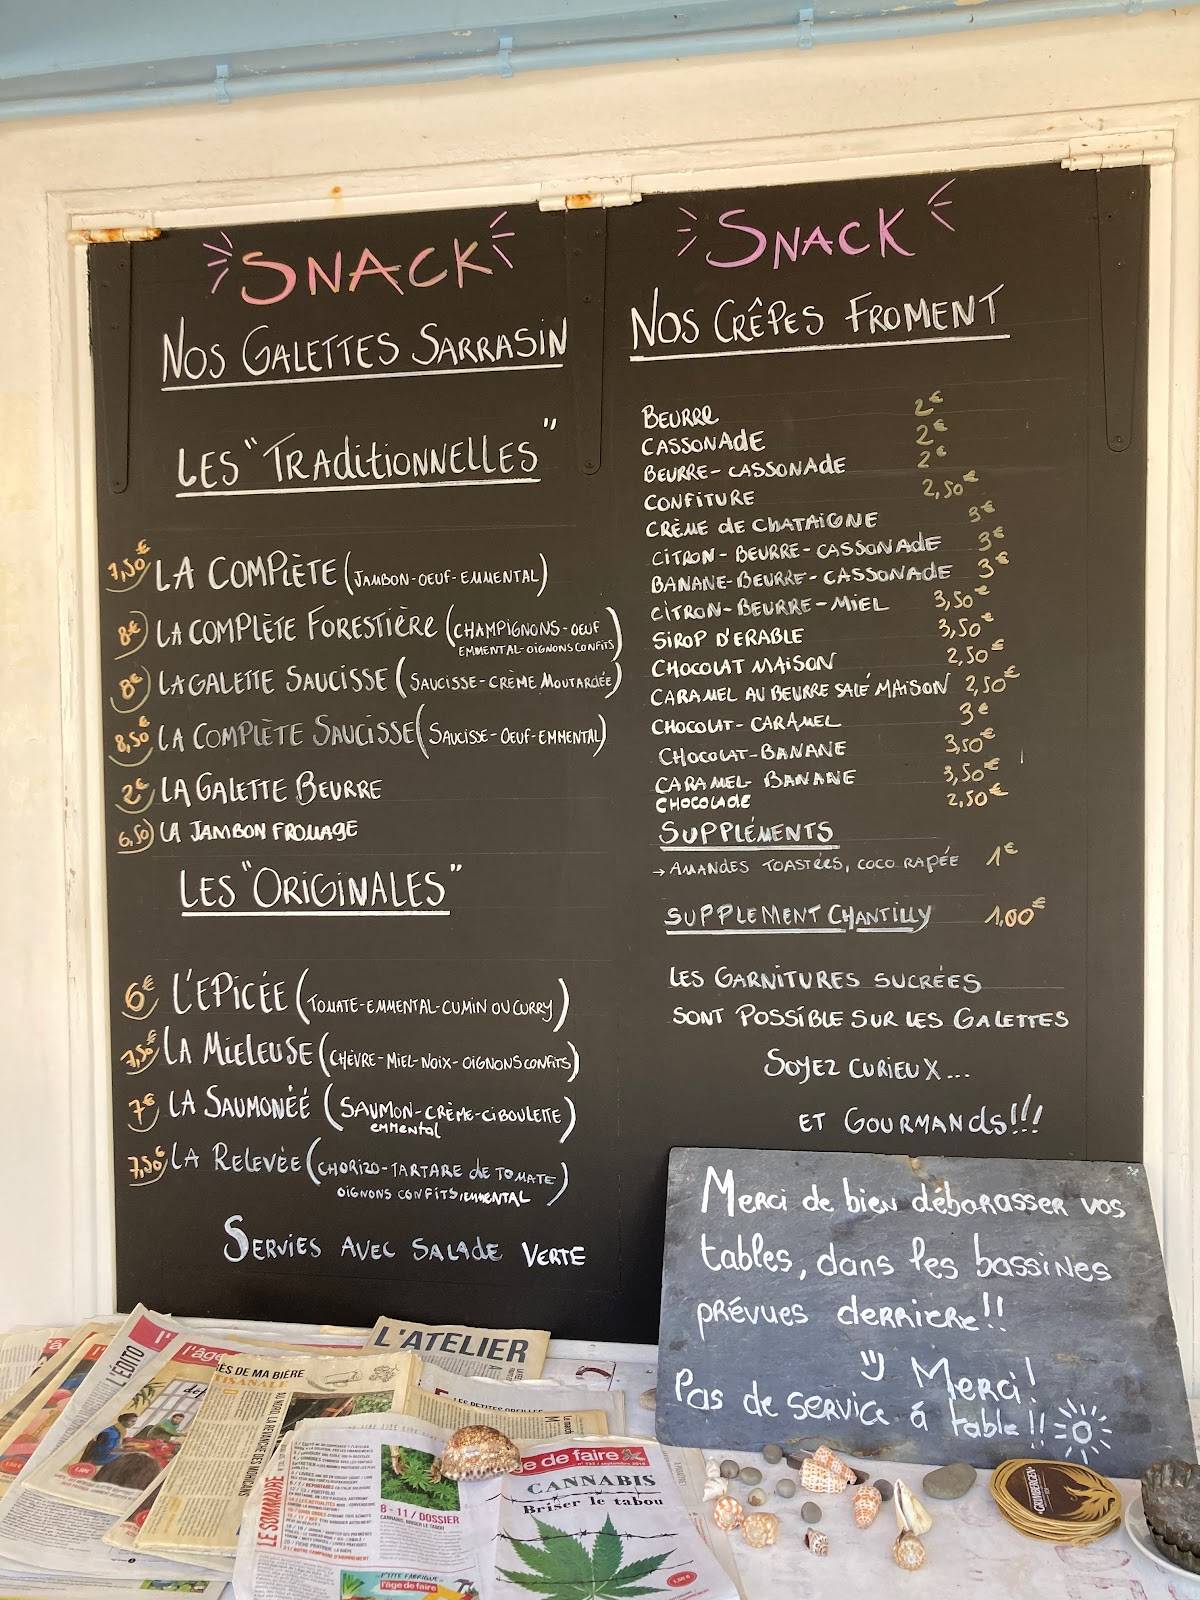 SNACK
NOS GALETTES SARRASIN
LES "TRADITIONNELLES"
7,50€ LA COMPLÈTE (JAMBON-OEUF-EMMENTAL)
8€ LA COMPLÈTE FORESTIÈRE (CHAMPIGNONS-OEUF
EMMENTAL-OIGNONS CONFITS)
8€ LA GALETTE SAUCISSE (SAUCISSE-CRÈME MOUTARDÉE)
8,50€ LA COMPLÈTE SAUCISSE (SAUCISSE-OEUF-EMMENTAL)
2€ LA GALETTE BEURRE
6,50 LA JAMBON FROMAGE
LES "ORIGINALES"
6€ L'EPICÉE (TOMATE-EMMENTAL-CUMIN OU CURRY)
7,50€ LA MIELEUSE (CHÈVRE-MIEL-NOIX-OIGNONS CONFITS)
7€ LA SAUMONÉÉ (SAUMON-CRÈME-CIBOULETTE)
EMMENTAL
7,50€ LA RELEVÉE (CHORIZO-TARTARE DE TOMATE)
OIGNONS CONFITS, EMMENTAL
SERVIES AVEC SALADE VERTE
SNACK
NOS CRÊPES FROMENT
BEURRE 2€
CASSONADE 2€
BEURRE-CASSONADE 2€
CONFITURE 2,50€
CRÈME DE CHATAIGNE 3€
CITRON-BEURRE-CASSONADE 3€
BANANE-BEURRE-CASSONADE 3€
CITRON-BEURRE-MIEL 3,50€
SIROP D'ERABLE 3,50€
CHOCOLAT MAISON 2,50€
CARAMEL AU BEURRE SALÉ MAISON 2,50€
CHOCOLAT-CARAMEL 3€
CHOCOLAT-BANANE 3,50€
CARAMEL-BANANE 3,50€
CHOCOLADE 2,50€
SUPPLÉMENTS
→ AMANDES TOASTÉES, COCO RAPÉE 1€
SUPPLEMENT CHANTILLY 1,00€
LES GARNITURES SUCRÉES
SONT POSSIBLE SUR LES GALETTES
SOYEZ CURIEUX...
ET GOURMANDS!!!
Merci de bien débarasser vos
tables, dans les bassines
prévues derriere!!
Merci!
Pas de service á table!!
L'ATELIER
L'ÉDITO
ÈS DE MA BIÈRE
TISANALE
LE SOMMAIRE
8 - 11 / DOSSIER
CANNABIS, BRISER LE TABOU
l'âge de faire
ge de faire
CANNABIS
Briser le tabou
GRIMBERGEN